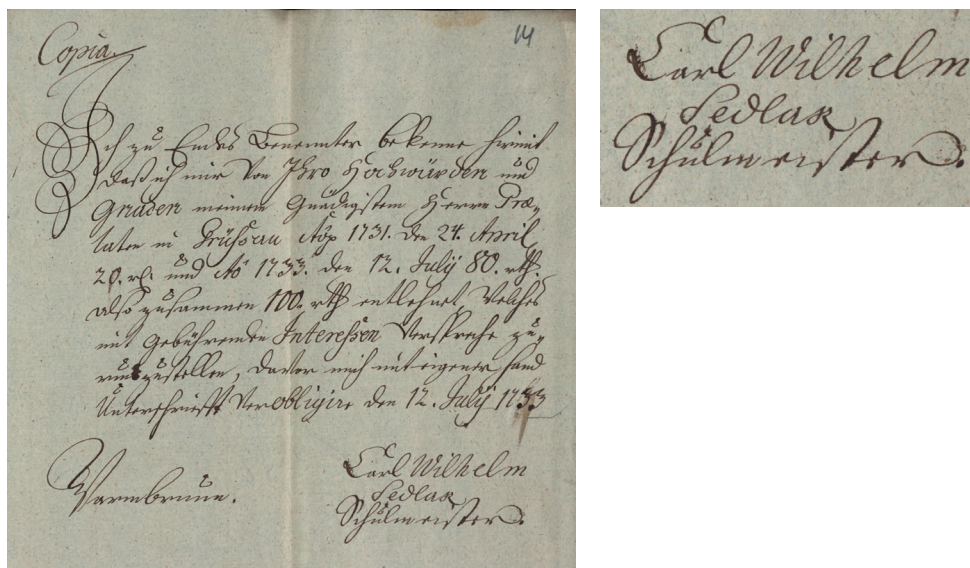 14
Copia.
Ich zu Endes Benennter bekenne hiermit
daß ich mir von Ihro Hochwürden und
Gnaden meinem Gnädigstem Herrn Præ-
laten in Grüssau Aõ 1731. den 24. April
20. rth. und Aõ 1733. den 12. Julÿ 80. rth.
also zusammen 100. rth entlehnet Welches
mit gebührenden Interessen Verspreche zu-
rück zustellen, davor mich mit eigener Hand
Unterschrifft Verobligire den 12. Julÿ 1733
Warmbrunn.
Carl Wilhelm
Sedlak
Schulmeister.
Carl Wilhelm
Sedlak
Schulmeister.